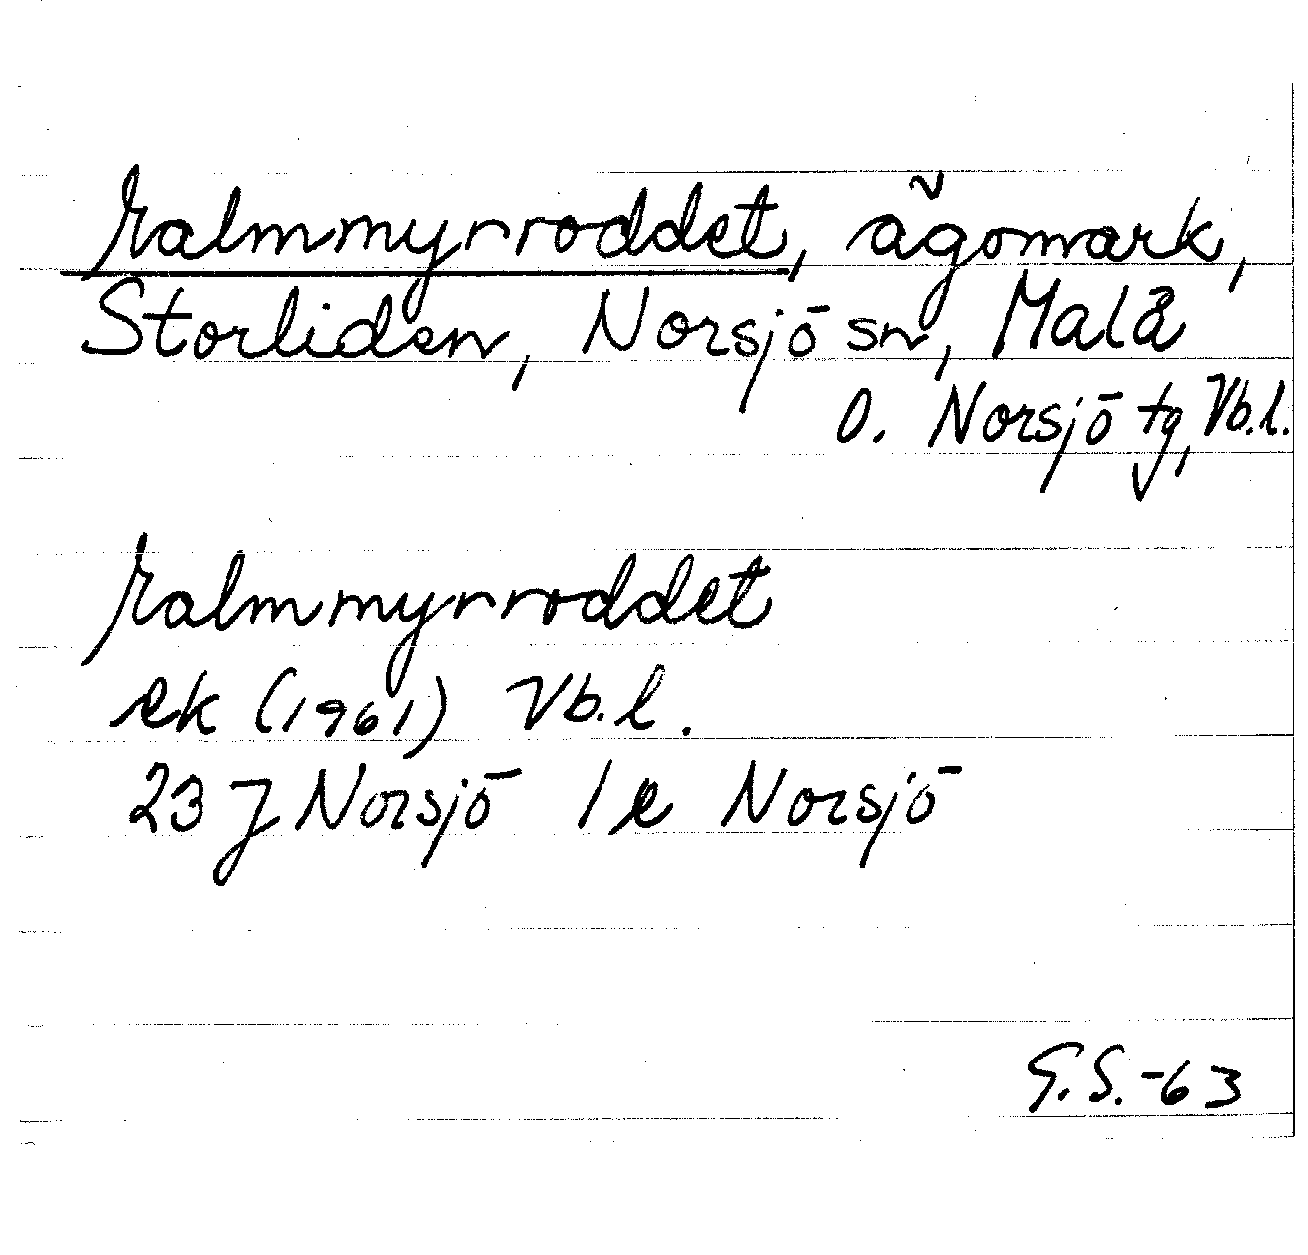 Halmmyrroddet, ägomark,
Storliden, Norsjö sn, Malå
o. Norsjö tg, Vb.l.
Halmmyrroddet
ek (1961) Vb. l.
23 J Norsjö 1 e Norsjö
G.S.-63